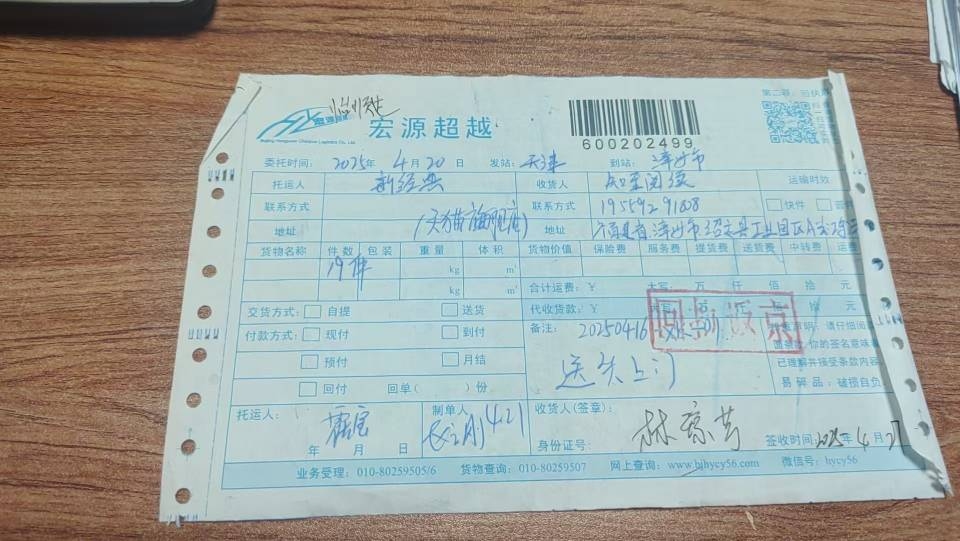 第二联：回执联
宏源超越
Beijing Hongyuan Chaoyue Logistics Co., Ltd.
600202499
委托时间：2025年4月20日 发站：天津 到站：漳州市
托运人 新经典 收货人 知至阅读 运输时效
联系方式 联系方式 19559291808 快件 普
地址 (天猫旗舰店) 地址 福建省漳州市
货物名称 件数 包装 重量 体积 货物价值 保险费 服务费 提货费 送货费 中转费 运费
19件 kg m³
kg m³ 合计运费：¥ 大写： 万 仟 佰 拾 元
交货方式： 自提 送货 代收货款：¥ 大写： 拾 元
付款方式： 现付 到付 备注： 20250416 声明：请仔细阅
预付 月结 面条款，你的签名意味
送货上门 已理解并接受条款内容
回付 回单( )份 易碎品：破损自负
托运人： 制单人 4.21 收货人(签章)： 林琼芳
年 月 日 身份证号： 签收时间：2025年4月2
业务受理：010-80259505/6 货物查询：010-80259507 网上查询：www.bjhycy56.com 微信号：hycy56